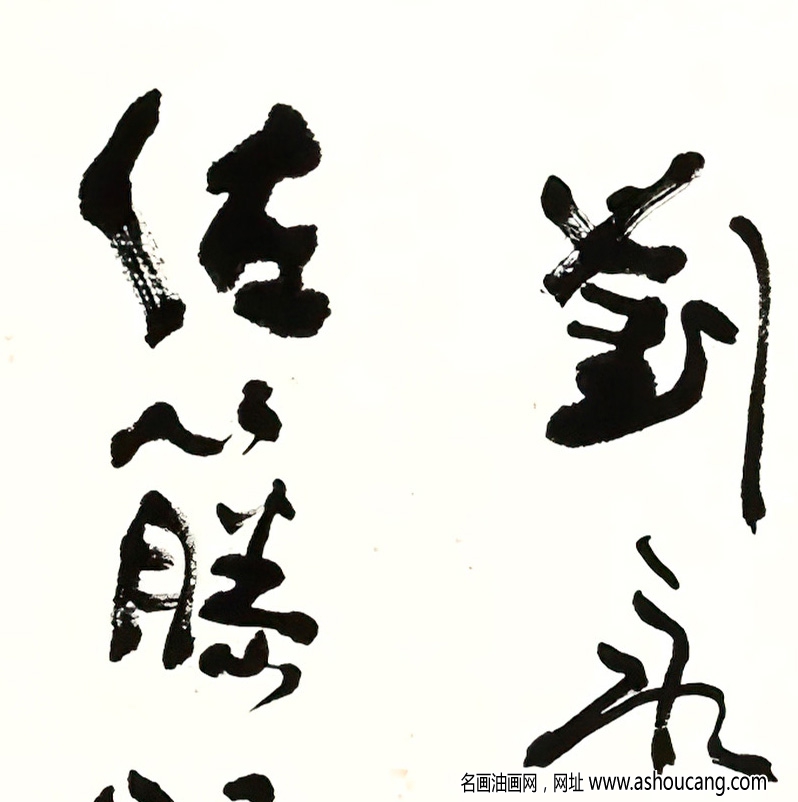 劉永
任心勝
名画油画网，网址 www.ashoucang.com